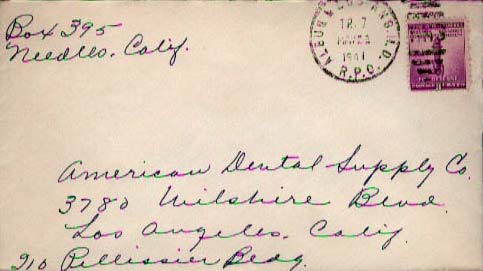 Box 395
Needles, Calif.
ALBUQ & LOS ANG. R.P.O.
TR. 7
1941
American Dental Supply Co.
3780 Wilshire Blvd.
Los Angeles, Calif.
210 Pellissier Bldg.